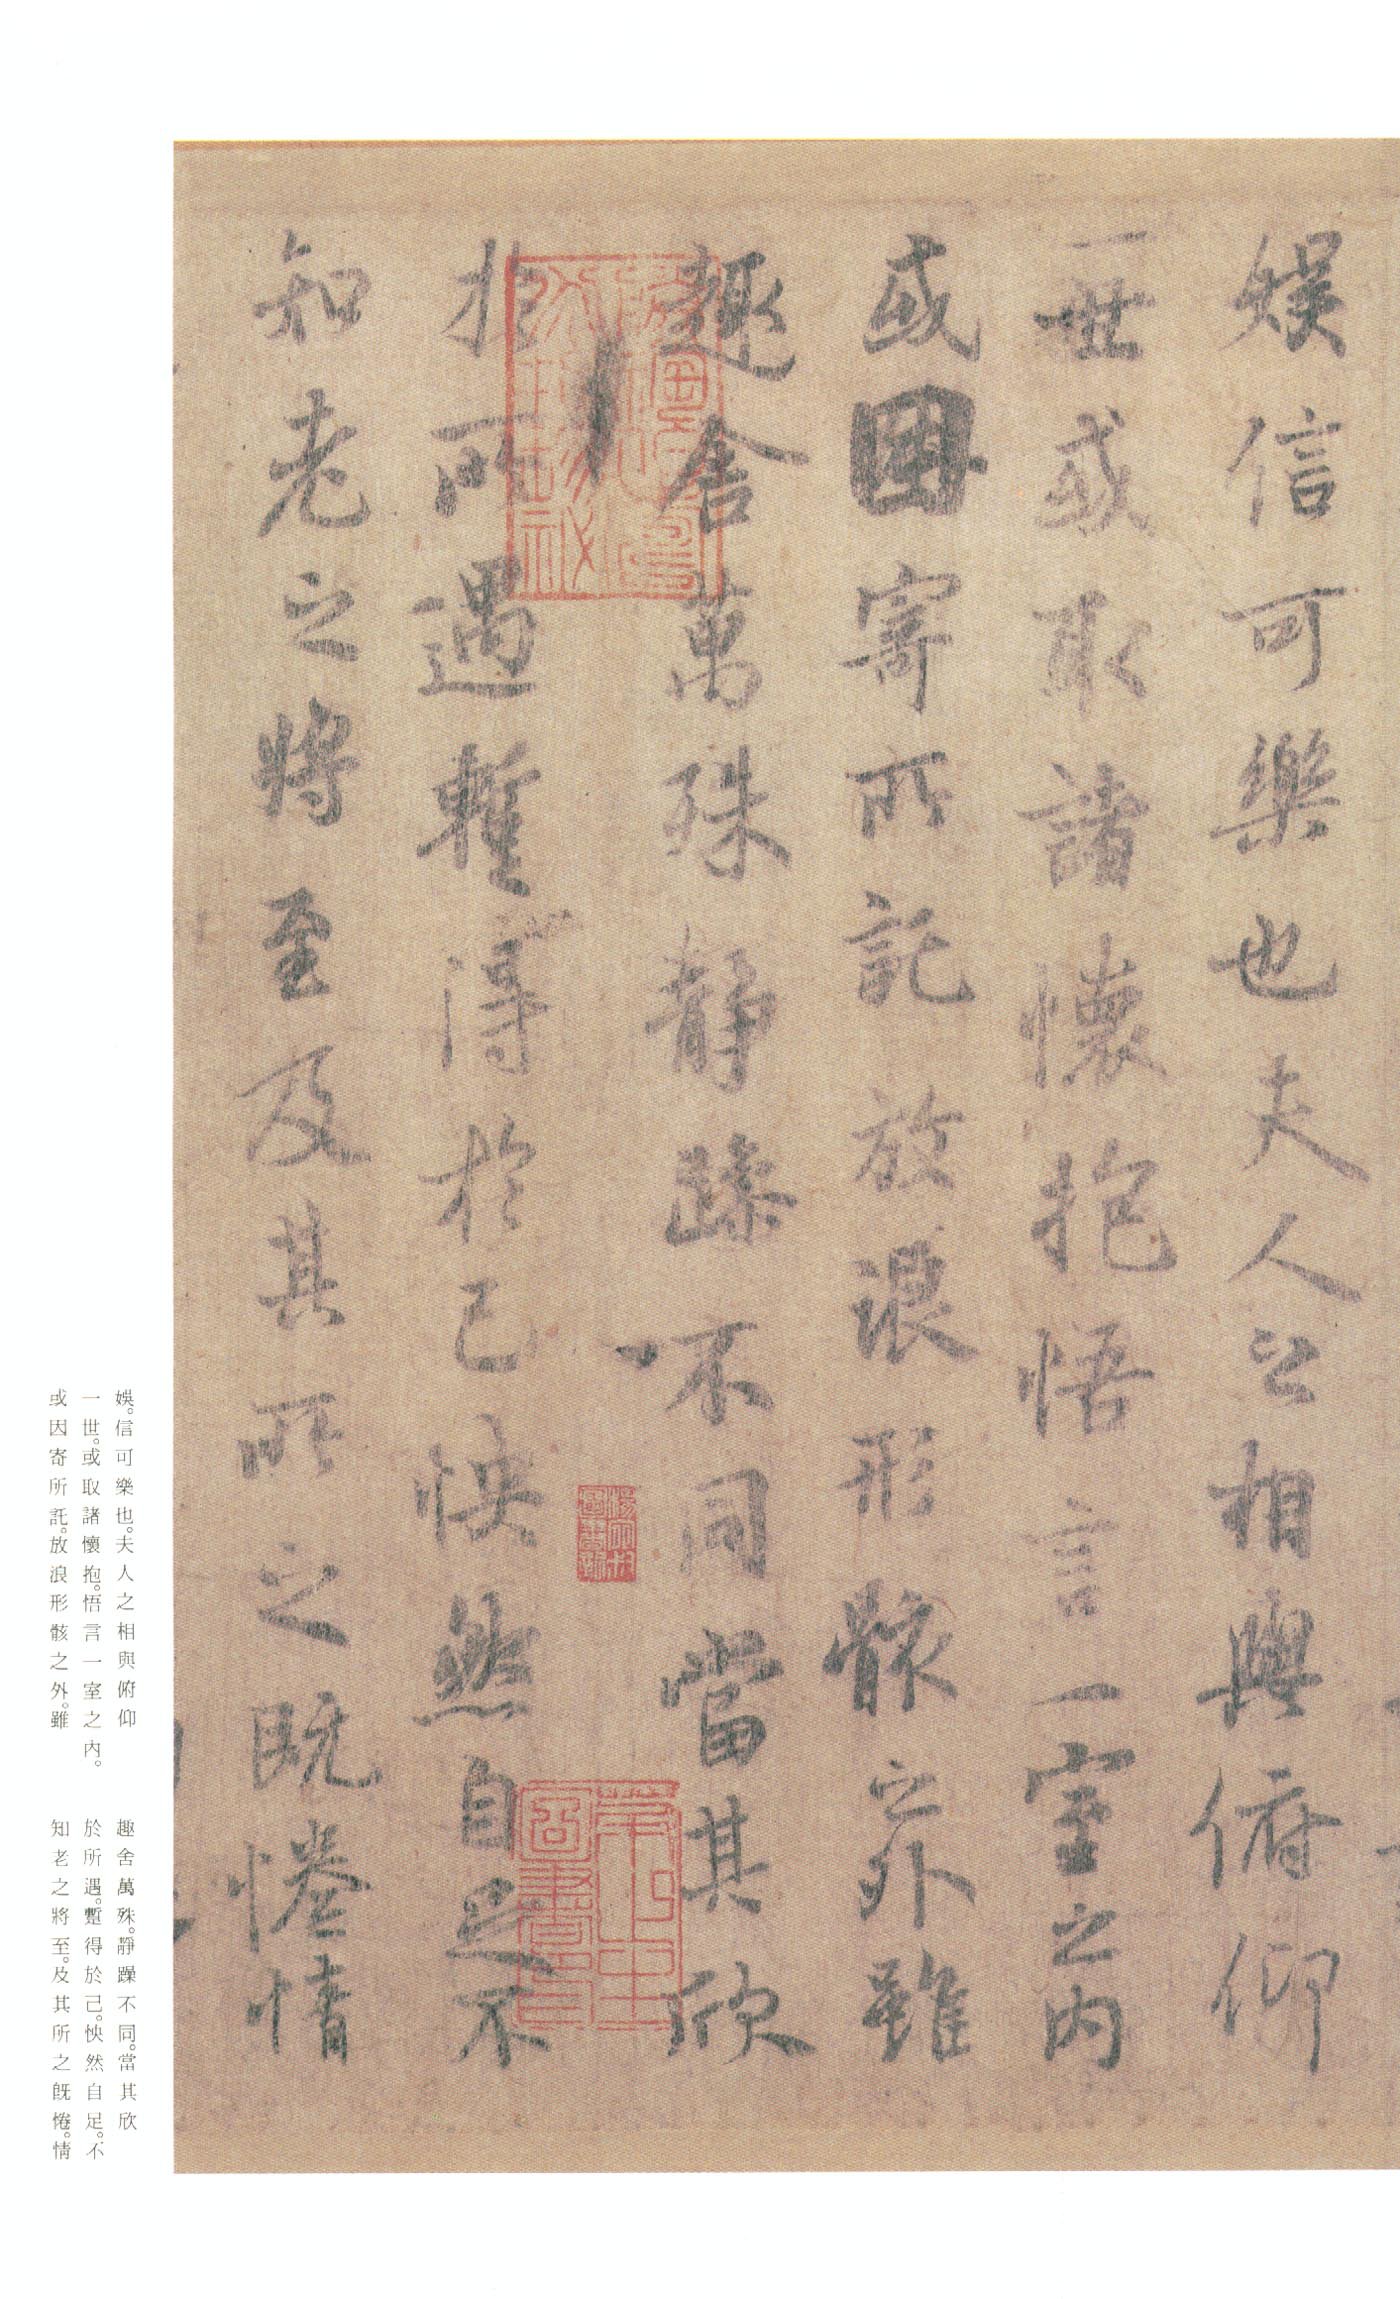 娛信可樂也夫人之相與俯仰
一世或取諸懷抱悟言一室之內
或因寄所託放浪形骸之外雖
趣舍萬殊靜躁不同當其欣
於所遇蹔得於己怏然自足不
知老之將至及其所之既惓情
娛。信可樂也。夫人之相與俯仰
一世。或取諸懷抱。悟言一室之內。
或因寄所託。放浪形骸之外。雖
趣舍萬殊。靜躁不同。當其欣
於所遇。蹔得於己。怏然自足。不
知老之將至。及其所之既惓。情